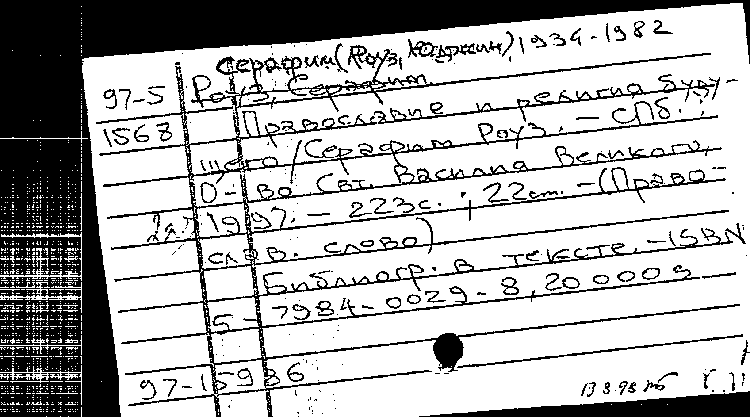 Серафим (Роуз, Юджин), 1934-1982
97-5 Роуз, Серафим
1568 Православие и религия буду-
щего / Серафим Роуз. - СПб.:
О-во Свт. Василия Великого,
2я7 1997. - 223с.; 22см. - (Право-
слав. слово)
Библиогр. в тексте. - ISBN
5-7984-0029-8, 20 000 э
97-15986